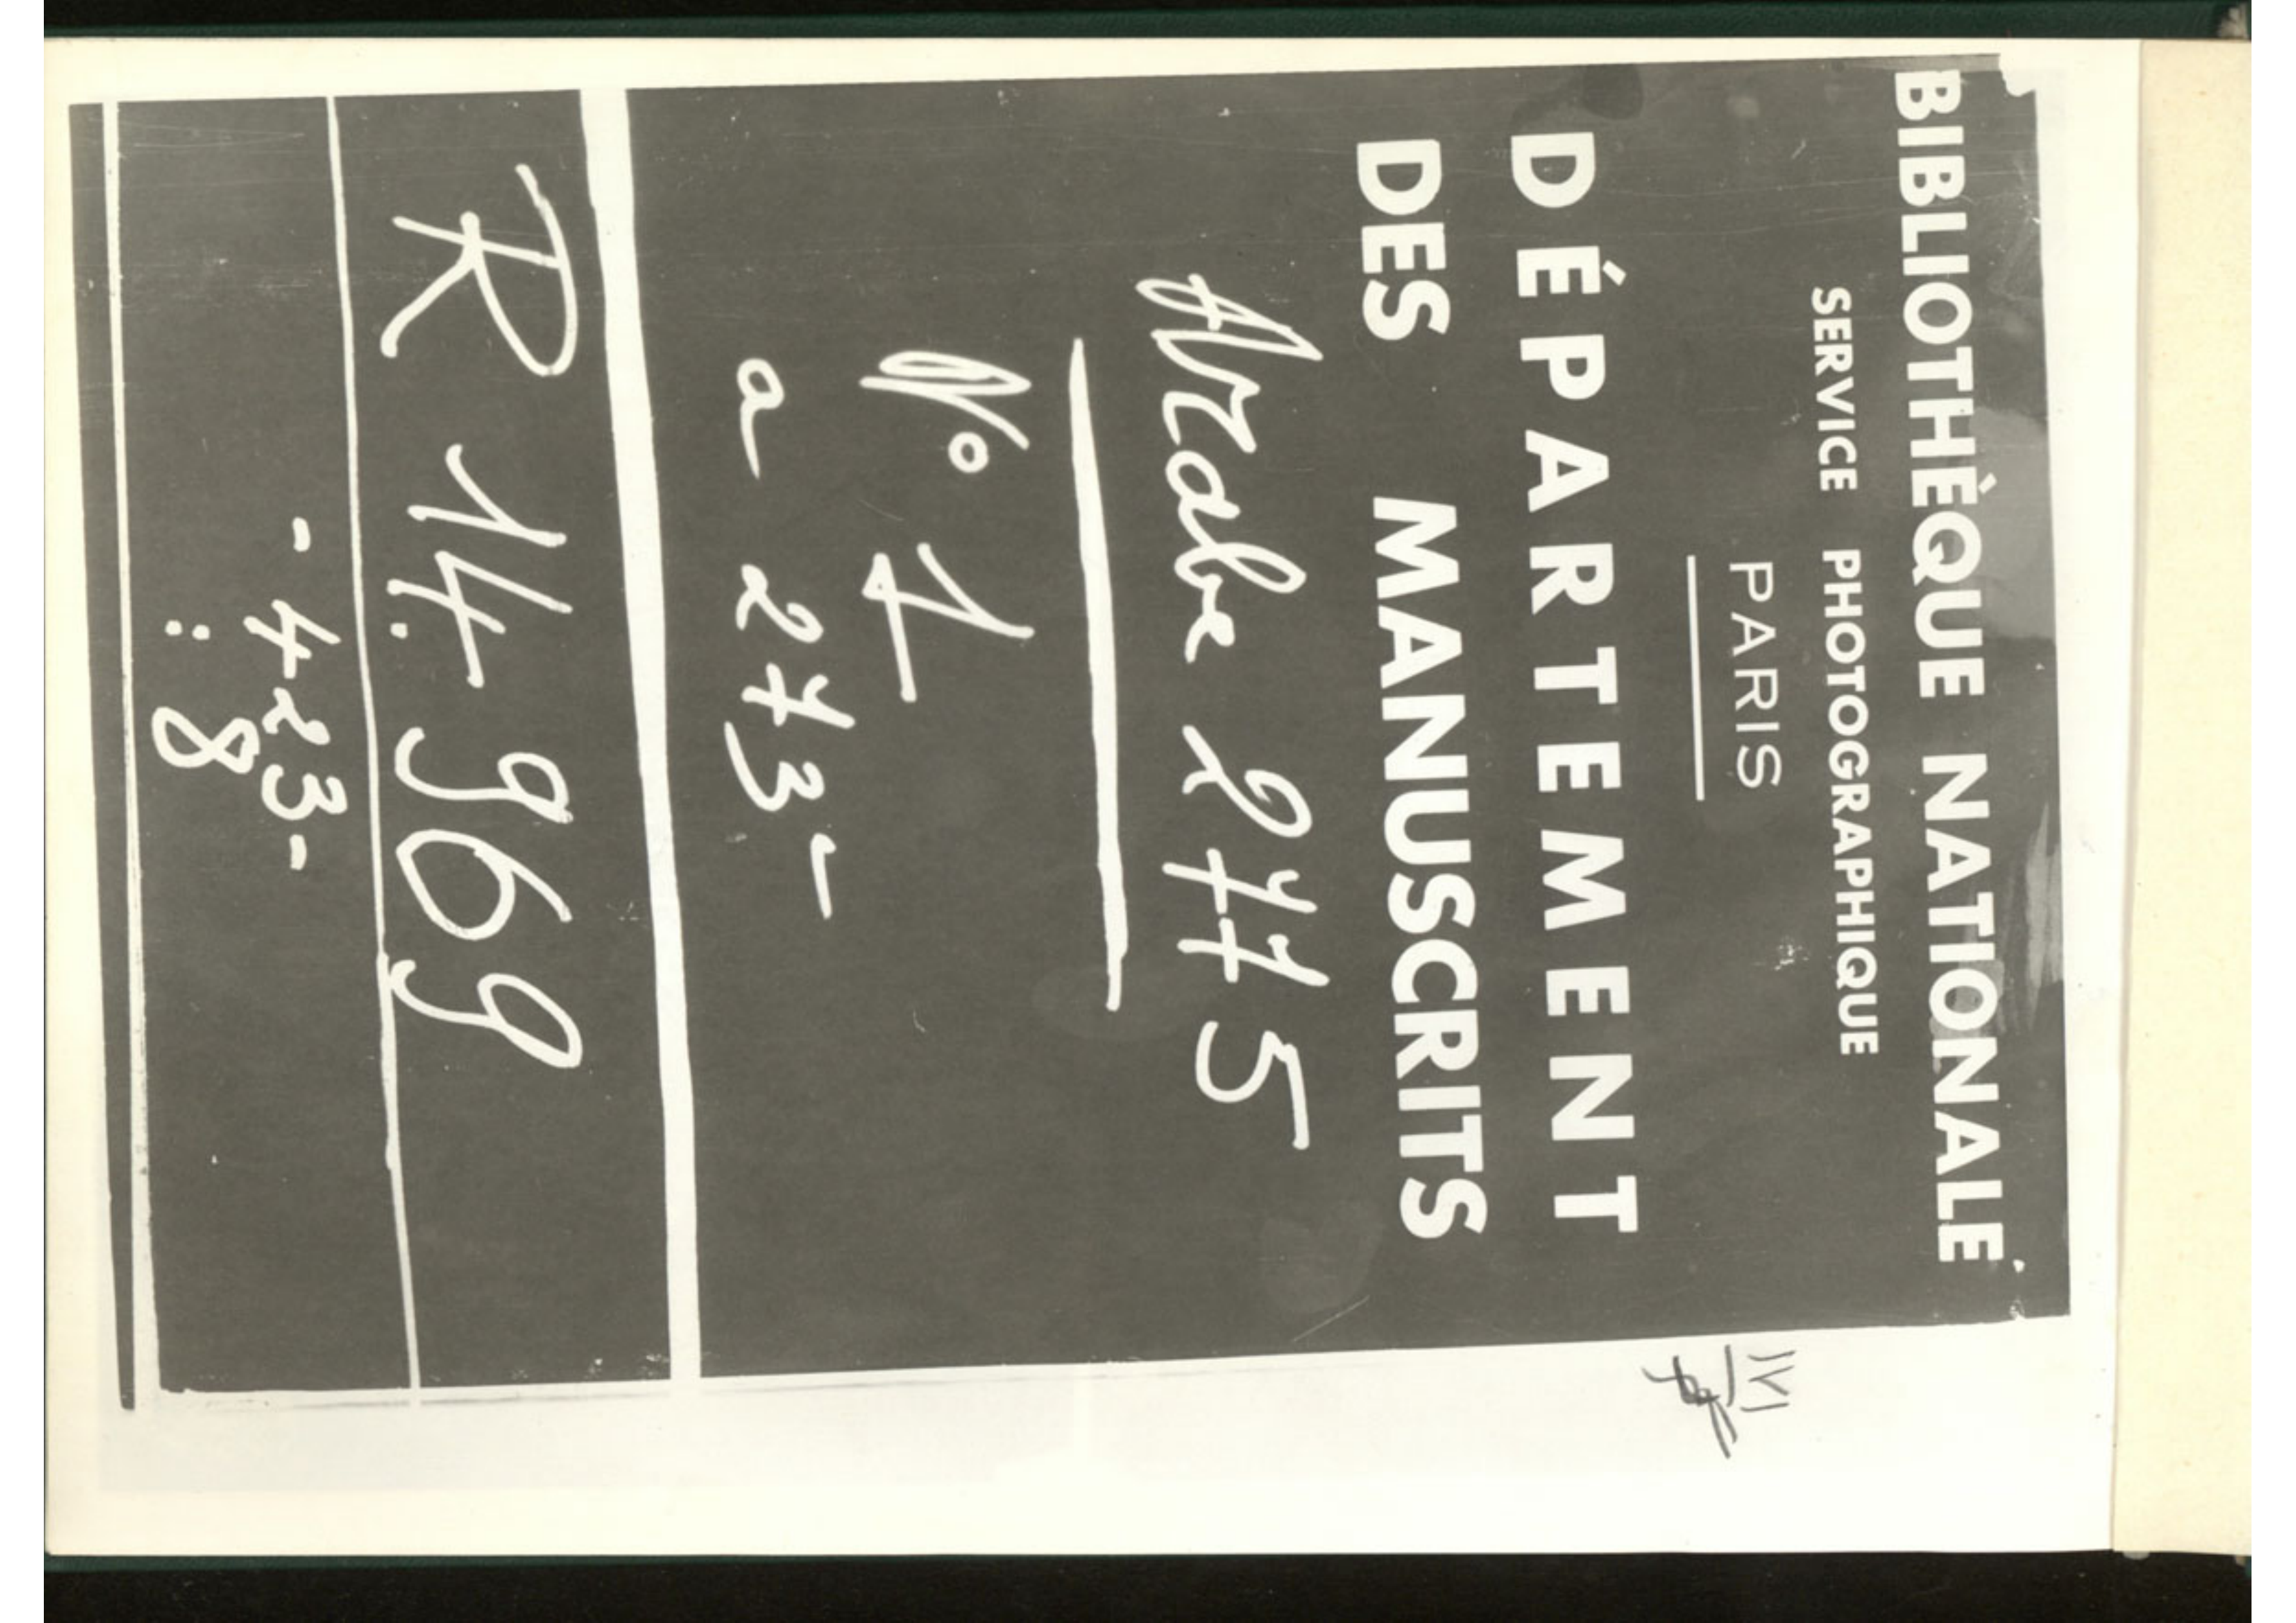 BIBLIOTHÈQUE NATIONALE
SERVICE PHOTOGRAPHIQUE
PARIS
DÉPARTEMENT
DES MANUSCRITS
Arabe 2775
No 1
a 273-
R 14.969
- 423-
: 8